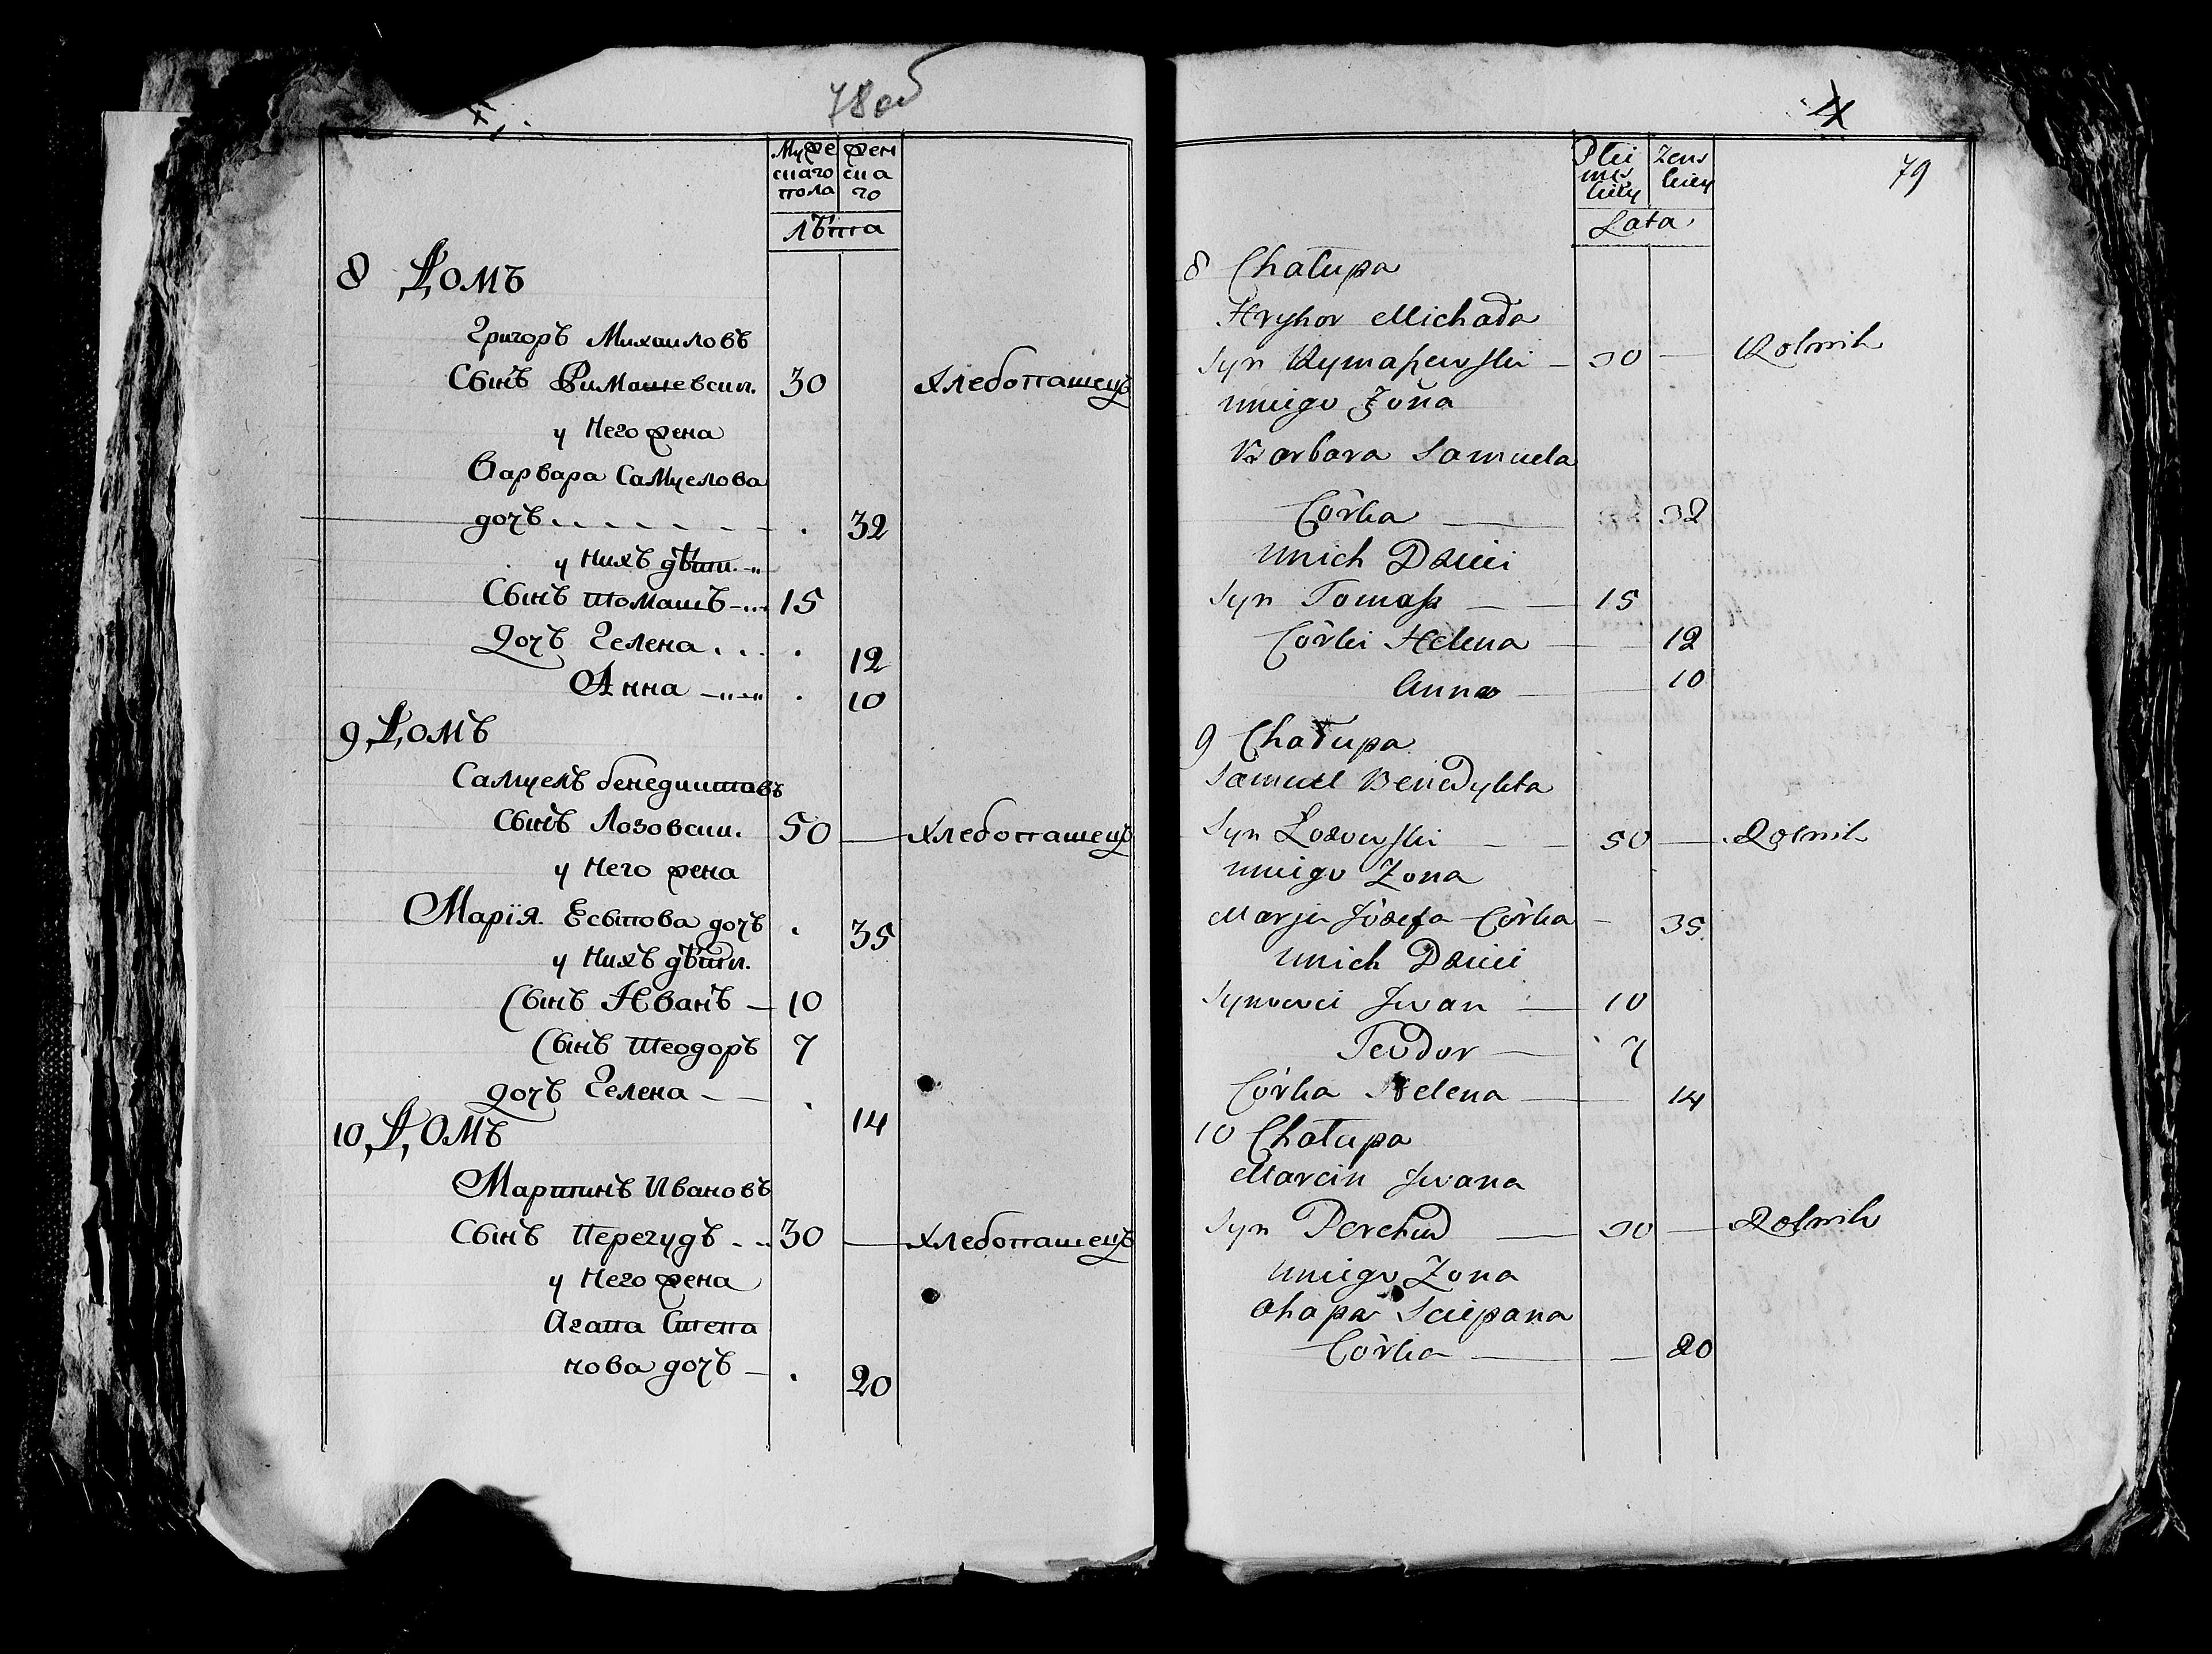 78об
Муже
скаго
пола
жен
ска
го
лѣта
8 Домъ
Григоръ Михаиловъ
Сынъ Римашевски. 30 Хлебопашецъ
у Него жена
Варвара Самуелова
дочъ 32
у Нихъ дѣти
Сынъ Томашъ 15
Дочъ Гелена 12
Анна 10
9 Домъ
Самуелъ бенедиктовъ
Сынъ Лозовски. 50 — Хлебопашецъ
у Него жена
Марія Есыпова дочъ 35
у Нихъ дѣти.
Сынъ Иванъ — 10
Сынъ Теодоръ 7
дочъ Гелена — — 14
10 Домъ
Мартинъ Ивановъ
Сынъ Перегудъ 30 — Хлебопашецъ
у Него жена
Агапа Степа
нова дочъ — 20
79
Płci
męs
kiey
żeńs
kiey
Lata
8 Chałupa
Hryhor Michała
Syn Rymaszewski — 30 — Rolnik
u niego Żona
Barbara Samuela
Córka — 32
u nich Dzieci
Syn Tomasz — — 15
Córki Helena — — 12
Anna — — 10
9 Chałupa
Samuel Benedykta
Syn Łozowski — — 50 — Rolnik
u niego Zona
Marja Józefa Córka — 35
u nich Dzieci
Synowei Jwan — 10
Teodor — 7
Córka Helena — 14
10 Chałupa
Marcin Jwana
Syn Perehud — 30 — Rolnik
u niego Zona
Ahapa Sciepana
Córka — — 20